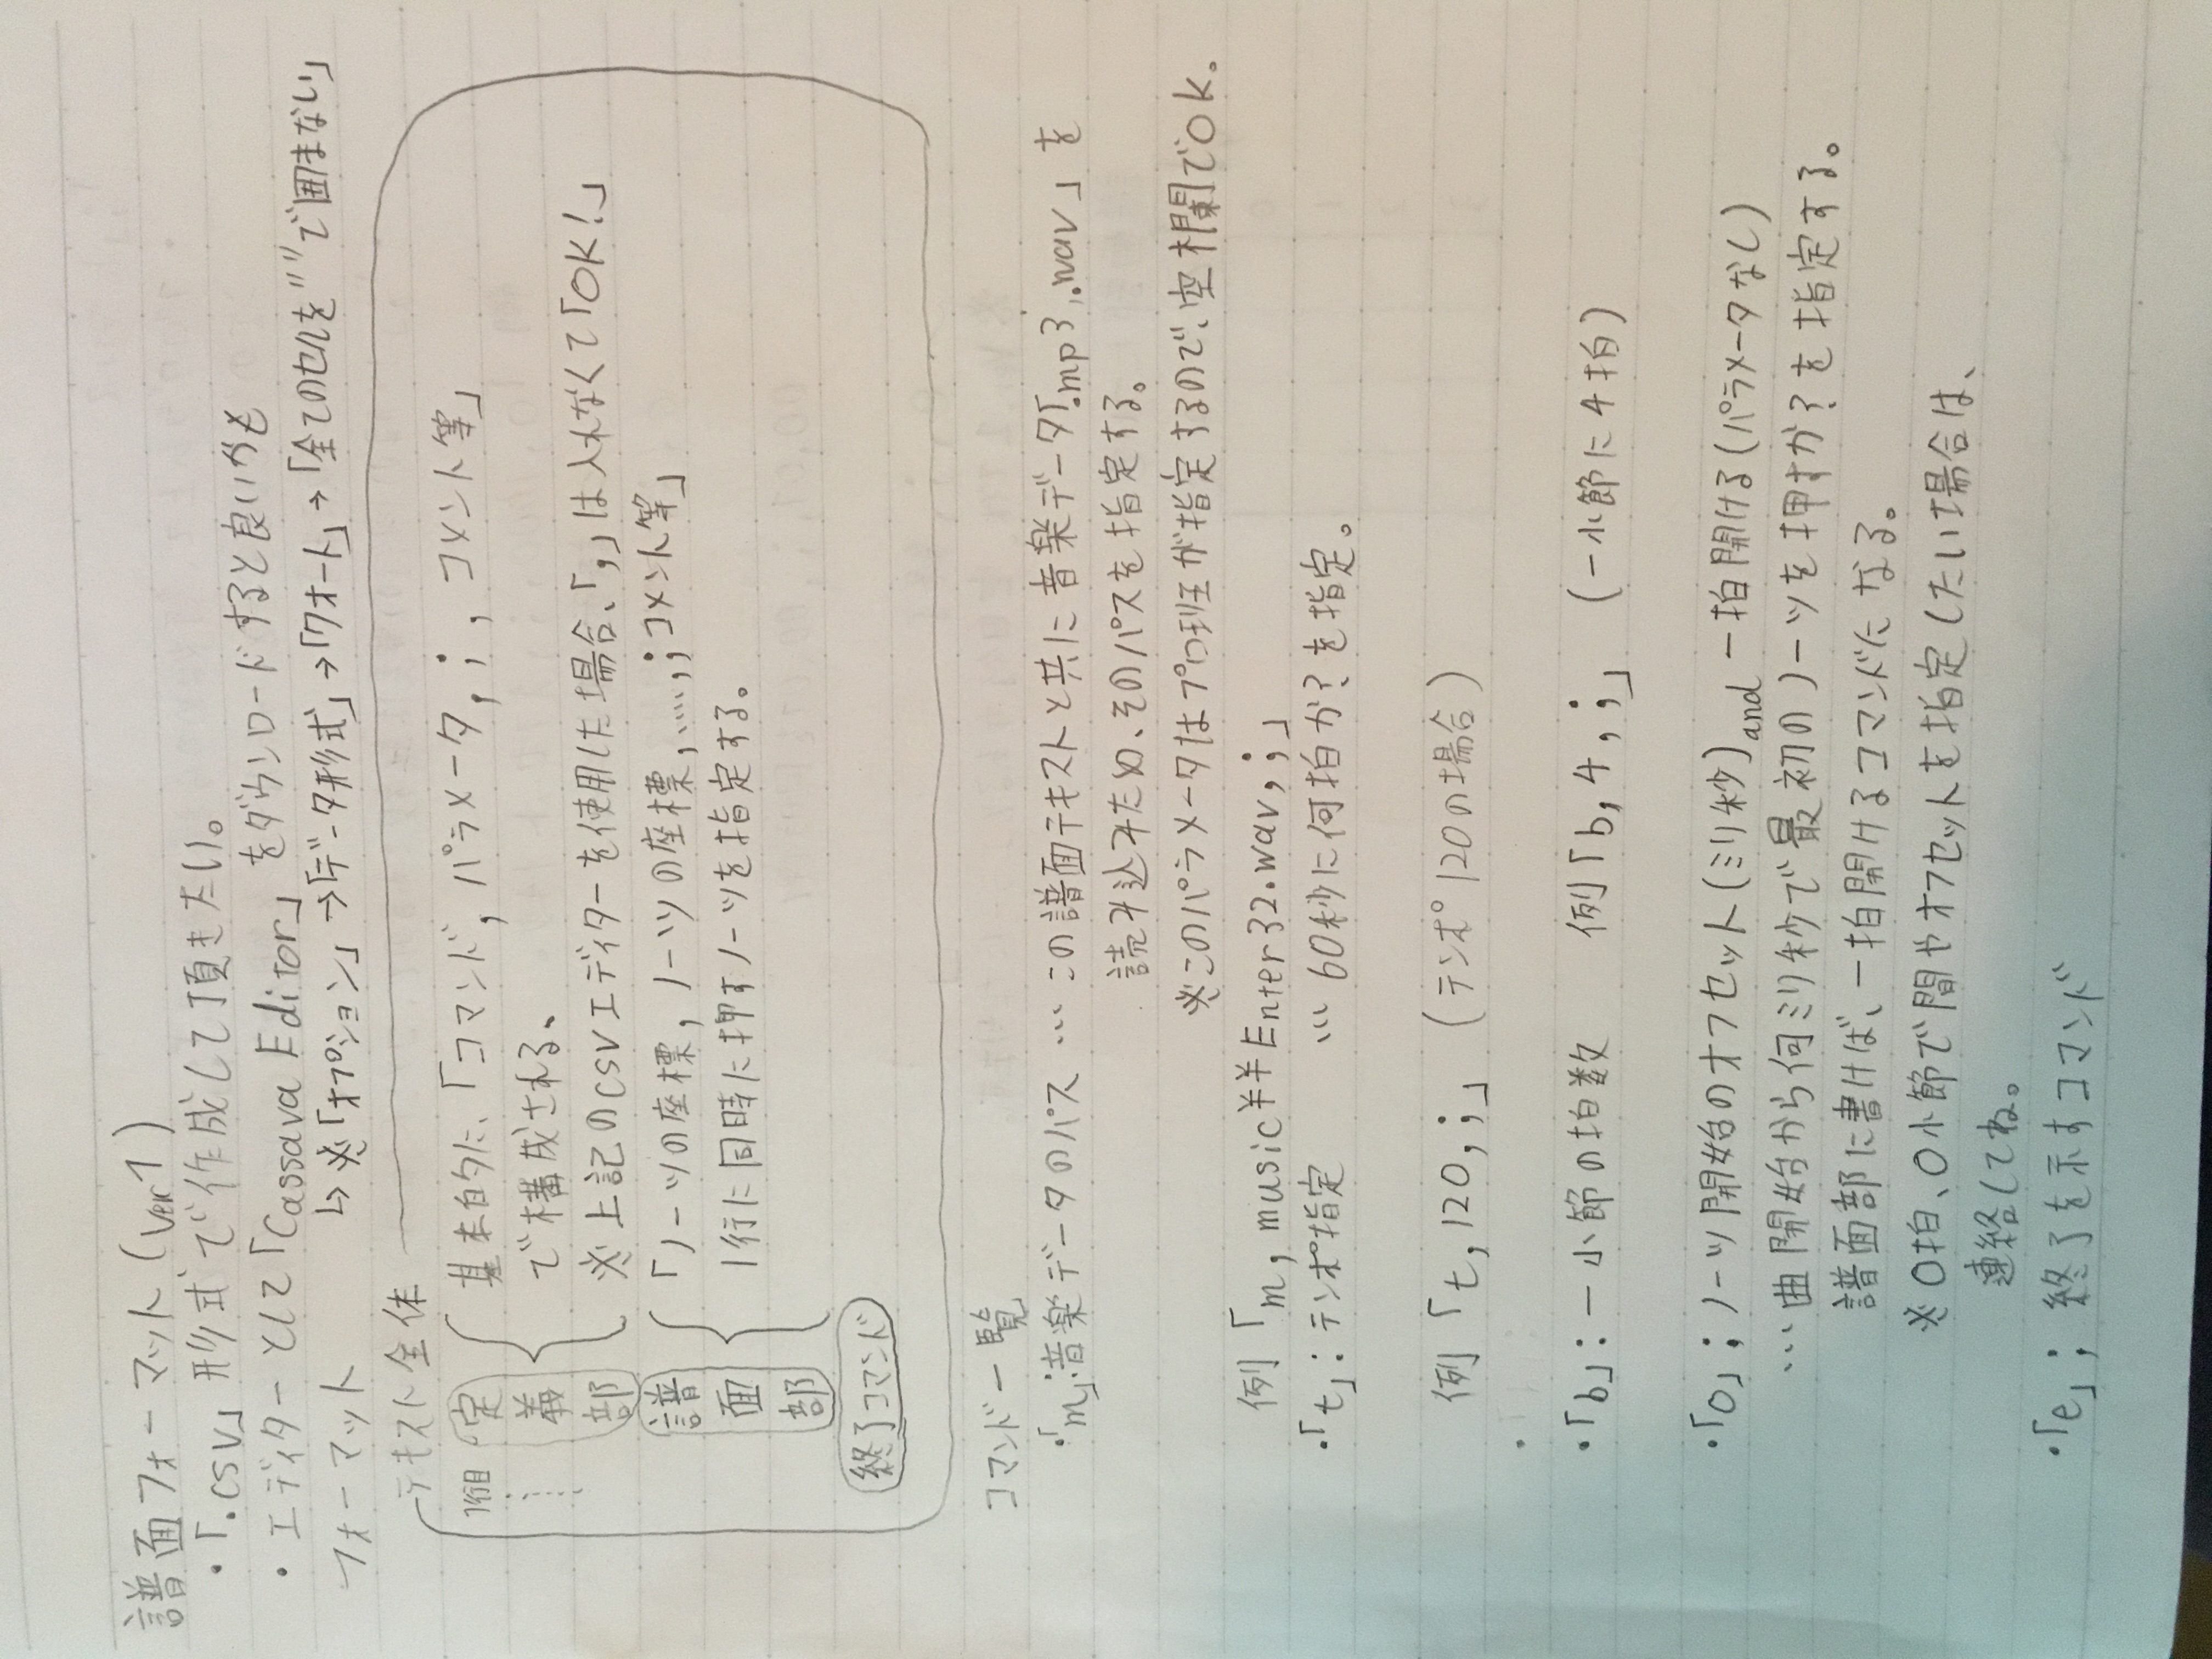 譜面フォーマット(ver1)
・「.csv」形式で作成して頂きたい。
・エディターとして「Cassava Editor」をダウンロードすると良いかも
↳※「オプション」→「データ形式」→「クオート」→「全てのセルを""で囲まない」
フォーマット
テキスト全体
1行目
定義部
基本的に、「コマンド, パラメータ, ; , コメント等」
で構成される、
※上記のCSVエディターを使用した場合、「,」は入れなくて「OK!」
譜面部
「ノーツの座標, ノーツの座標, ....., ; コメント等」
1行に同時に押すノーツを指定する。
終了コマンド
コマンド一覧
・「m」:音楽データのパス … この譜面テキストと共に音楽データ「.mp3,.wav」を
読み込みため、そのパスを指定する。
※このパラメータはプロ班が指定するので、空欄でOK.
例「m, music¥¥Enter32.wav, ;」
・「t」: テンポ指定 … 60秒に何拍か?を指定。
例「t, 120, ;」 (テンポ120の場合)
・
・「b」: 一小節の拍数 例「b, 4, ;」 (一小節に4拍)
・「o」; ノーツ開始のオフセット(ミリ秒) and 一拍開ける(パラメータなし)
…曲開始から何ミリ秒で最初のノーツを押すか?を指定する。
譜面部に書けば、一拍開けるコマンドになる。
※〇拍、〇小節で間やオフセットを指定したい場合は、
連絡してね。
・「e」; 終了を示すコマンド